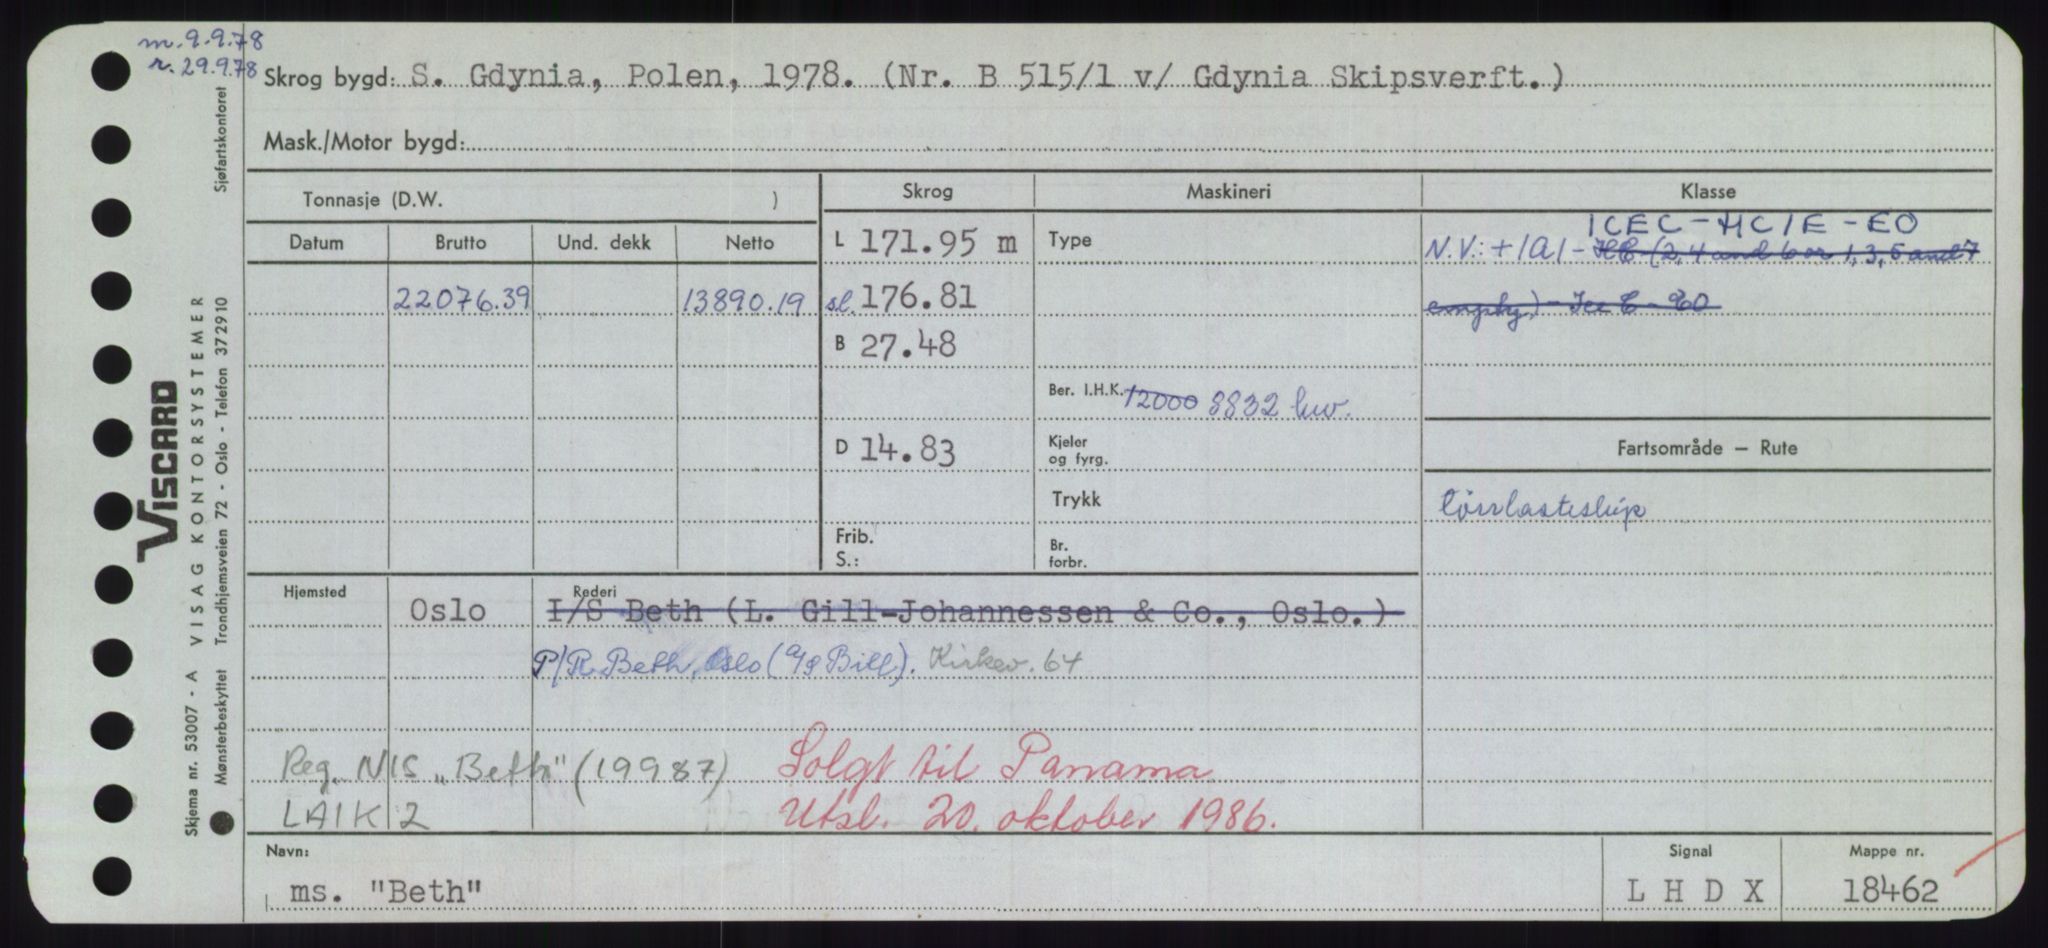 m. 9.9.78
r. 29.9.78
Skrog bygd: S. Gdynia, Polen, 1978. (Nr. B 515/1 v/ Gdynia Skipsverft.)
Mask./Motor bygd:
Tonnasje (D.W. )
Skrog
Maskineri
Klasse
Datum
Brutto
Und. dekk
Netto
L 171.95 m
Type
ICEC-HC/E-EO
N.V.: +1A1- HC (2, 4 and 6 or 1, 3, 5 and 7
22076.39
13890.19
sl. 176.81
empty) - Ice C - EO
B 27.48
Ber. I.H.K. 12000 8832 kw.
D 14.83
Kjeler
og fyrg.
Fartsområde – Rute
Trykk
tørrlasteskip
Frib.
S.:
Br.
forbr.
Hjemsted
Rederi
Oslo
I/S Beth (L. Gill-Johannessen & Co., Oslo.)
P/R Beth, Oslo (A/S Bill). Kirkev. 64
Reg. NIS "Beth" (19987)
Solgt til Panama
LAIK2
Utsl. 20. oktober 1986.
Navn:
ms. "Beth"
Signal
L H D X
Mappe nr.
18462
VISCARD
Skjema nr. 53007 - A VISAG KONTORSYSTEMER
Mønsterbeskyttet Trondhjemsveien 72 - Oslo - Telefon 372910
Sjøfartskontoret